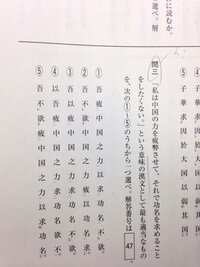 に読むか。
選べ。解
⑤ 子華求因於大国以弱其国
問三 「私は中国の力を疲弊させて、それで功名を求めること
をしたくない。」という意味の漢文として最も適当なもの
を、次の①～⑤のうちから一つ選べ。解答番号は 47
① 吾疲中国之力以求功名欲不。
② 吾不欲以疲中国之力求功名。
③ 以吾不欲疲中国之力求功名。
④ 以吾疲中国之力求功名欲不。
⑤ 吾不欲疲中国之力以求功名。